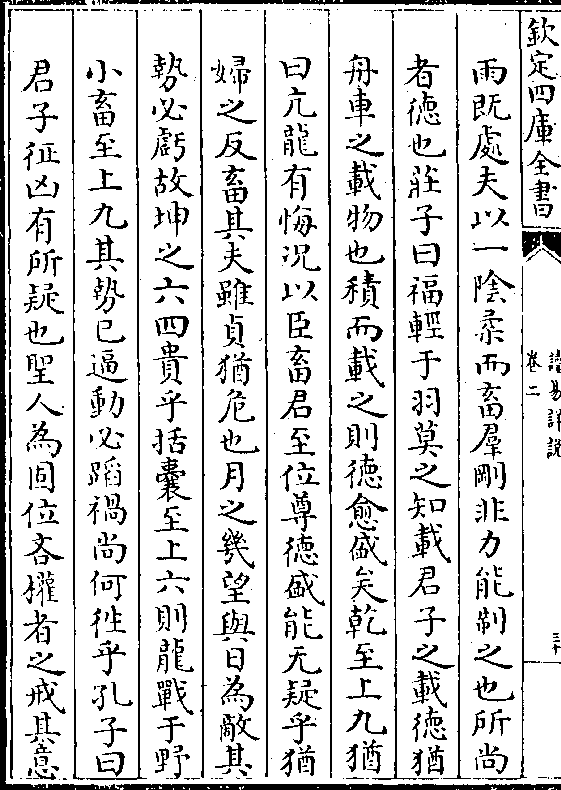 欽定四庫全書
讀易詳説
卷二
三十
雨既處夫以一陰柔而畜羣剛非力能制之也所尚
者德也莊子曰福輕于羽莫之知載君子之載德猶
舟車之載物也積而載之則德愈盛矣乾至上九猶
曰亢龍有悔况以臣畜君至位尊德盛能无疑乎猶
婦之反畜其夫雖貞猶危也月之幾望與日為敵其
勢必虧故坤之六四貴乎括囊至上六則龍戰于野
小畜至上九其勢已逼動必蹈禍尚何徃乎孔子曰
君子征凶有所疑也聖人為固位吝權者之戒其意